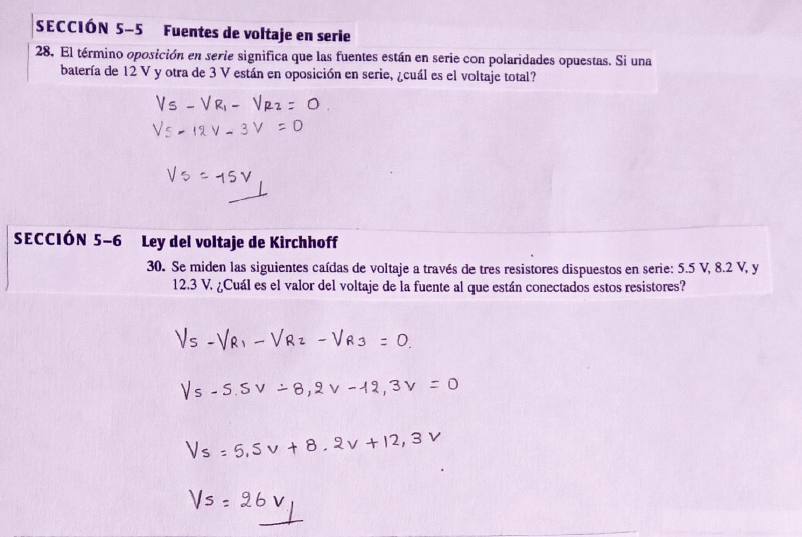 SECCIÓN 5–5 Fuentes de voltaje en serie
28. El término oposición en serie significa que las fuentes están en serie con polaridades opuestas. Si una
batería de 12 V y otra de 3 V están en oposición en serie, ¿cuál es el voltaje total?
Vs - VR1 - VR2 = 0.
Vs - 12 V - 3 V = 0
Vs = 15 V
SECCIÓN 5–6 Ley del voltaje de Kirchhoff
30. Se miden las siguientes caídas de voltaje a través de tres resistores dispuestos en serie: 5.5 V, 8.2 V, y
12.3 V. ¿Cuál es el valor del voltaje de la fuente al que están conectados estos resistores?
Vs - VR1 - VR2 - VR3 = 0.
Vs - 5.5 V - 8,2 V - 12,3 V = 0
Vs = 5,5 V + 8.2 V + 12,3 V
Vs = 26 V